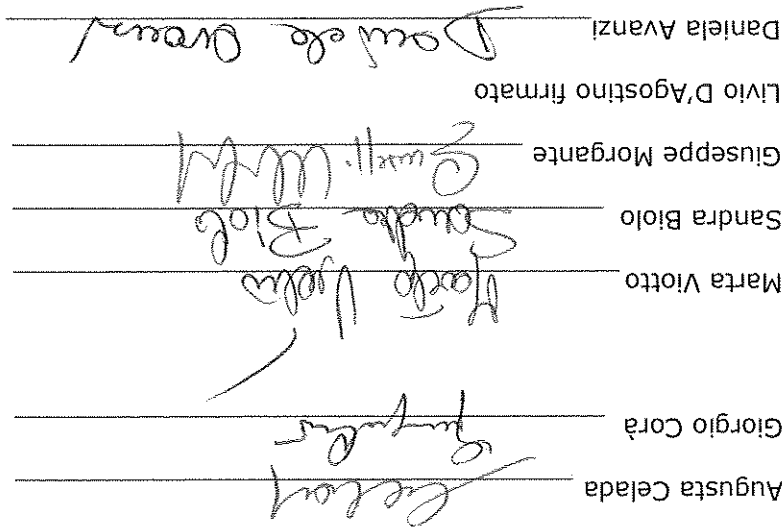 Augusta Celada
Giorgio Corà
Marta Viotto Marta
Sandra Biolo Sandra Biolo
Giuseppe Morgante
Livio D'Agostino firmato
Daniela Avanzi Daniela Avanzi